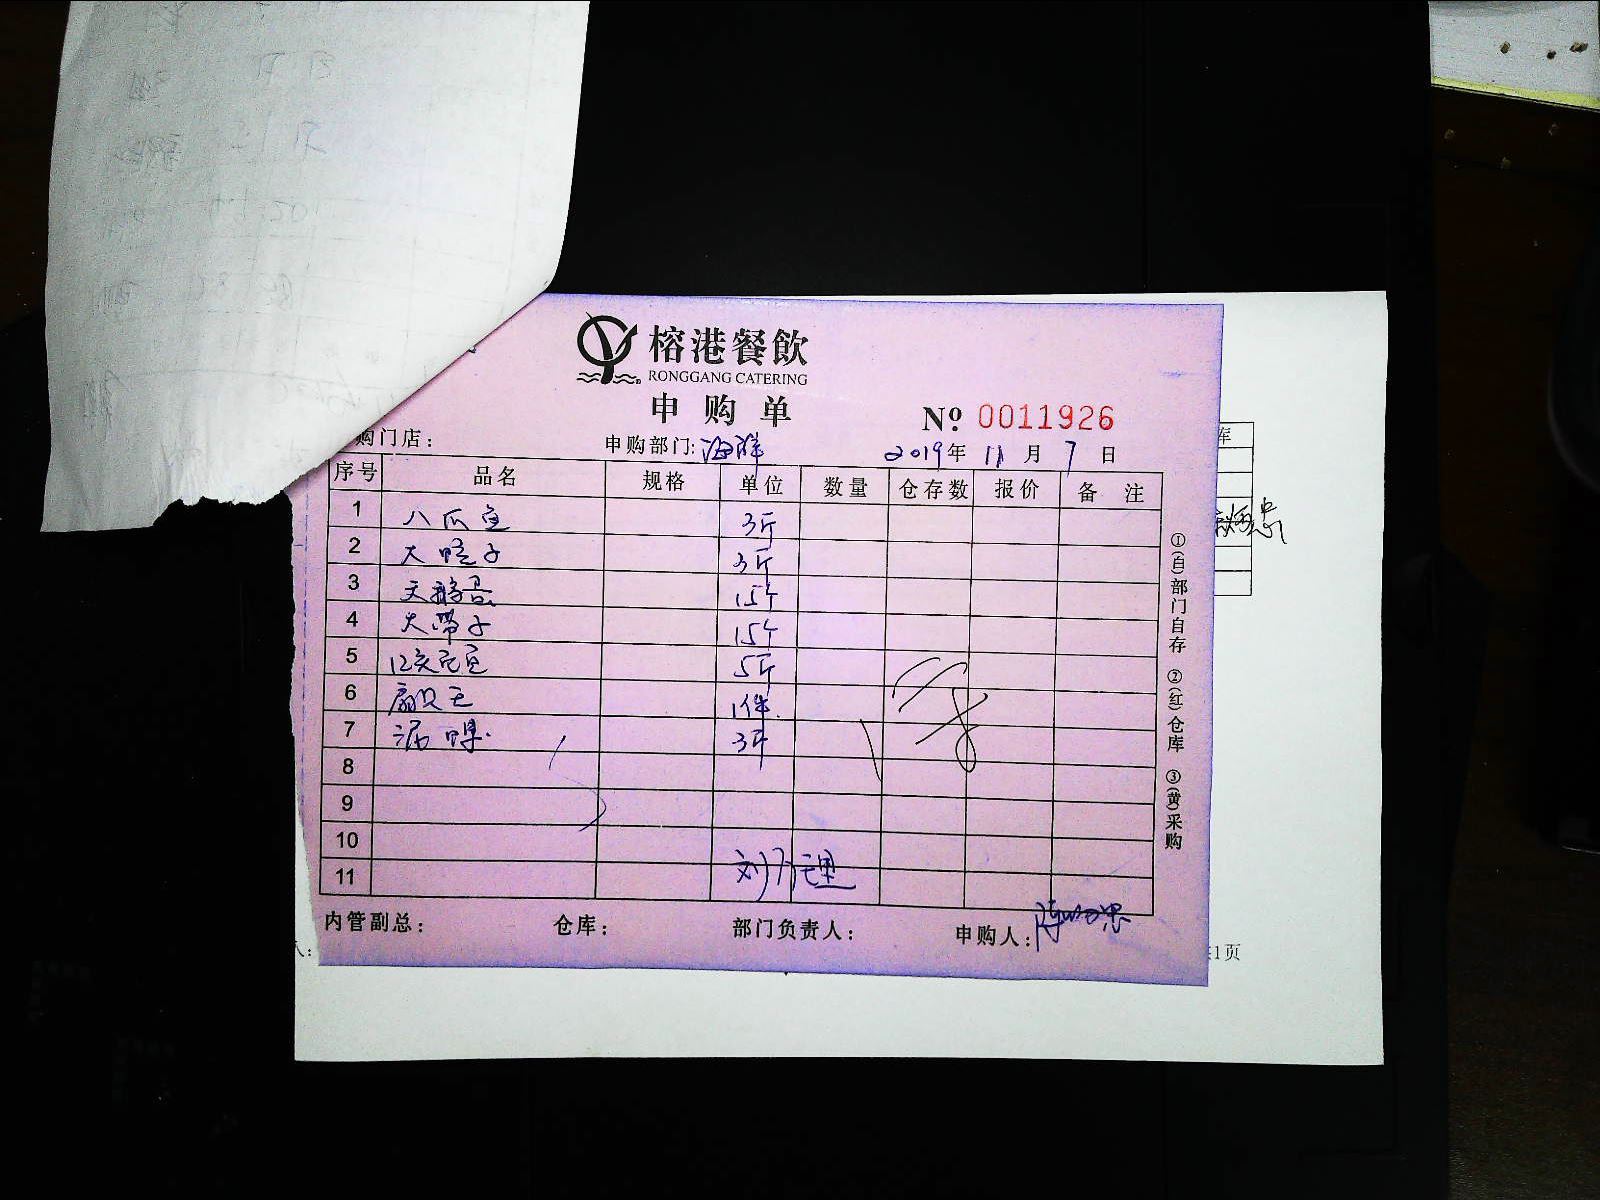 榕港餐飲
RONGGANG CATERING
申购单
№ 0011926
购门店： 申购部门:海鲜 2019年 11月 7日
序号 品名 规格 单位 数量 仓存数 报价 备注
1 八爪鱼 3斤
2 大蛏子 3斤
3 天鹅蛋 15个
4 大带子 15个
5 5斤
6 扇贝王 1件
7 泥螺 3斤
8
9
10
11
内管副总： 仓库： 部门负责人： 申购人：
①(白)部门自存 ②(红)仓库 ③(黄)采购
库
1页